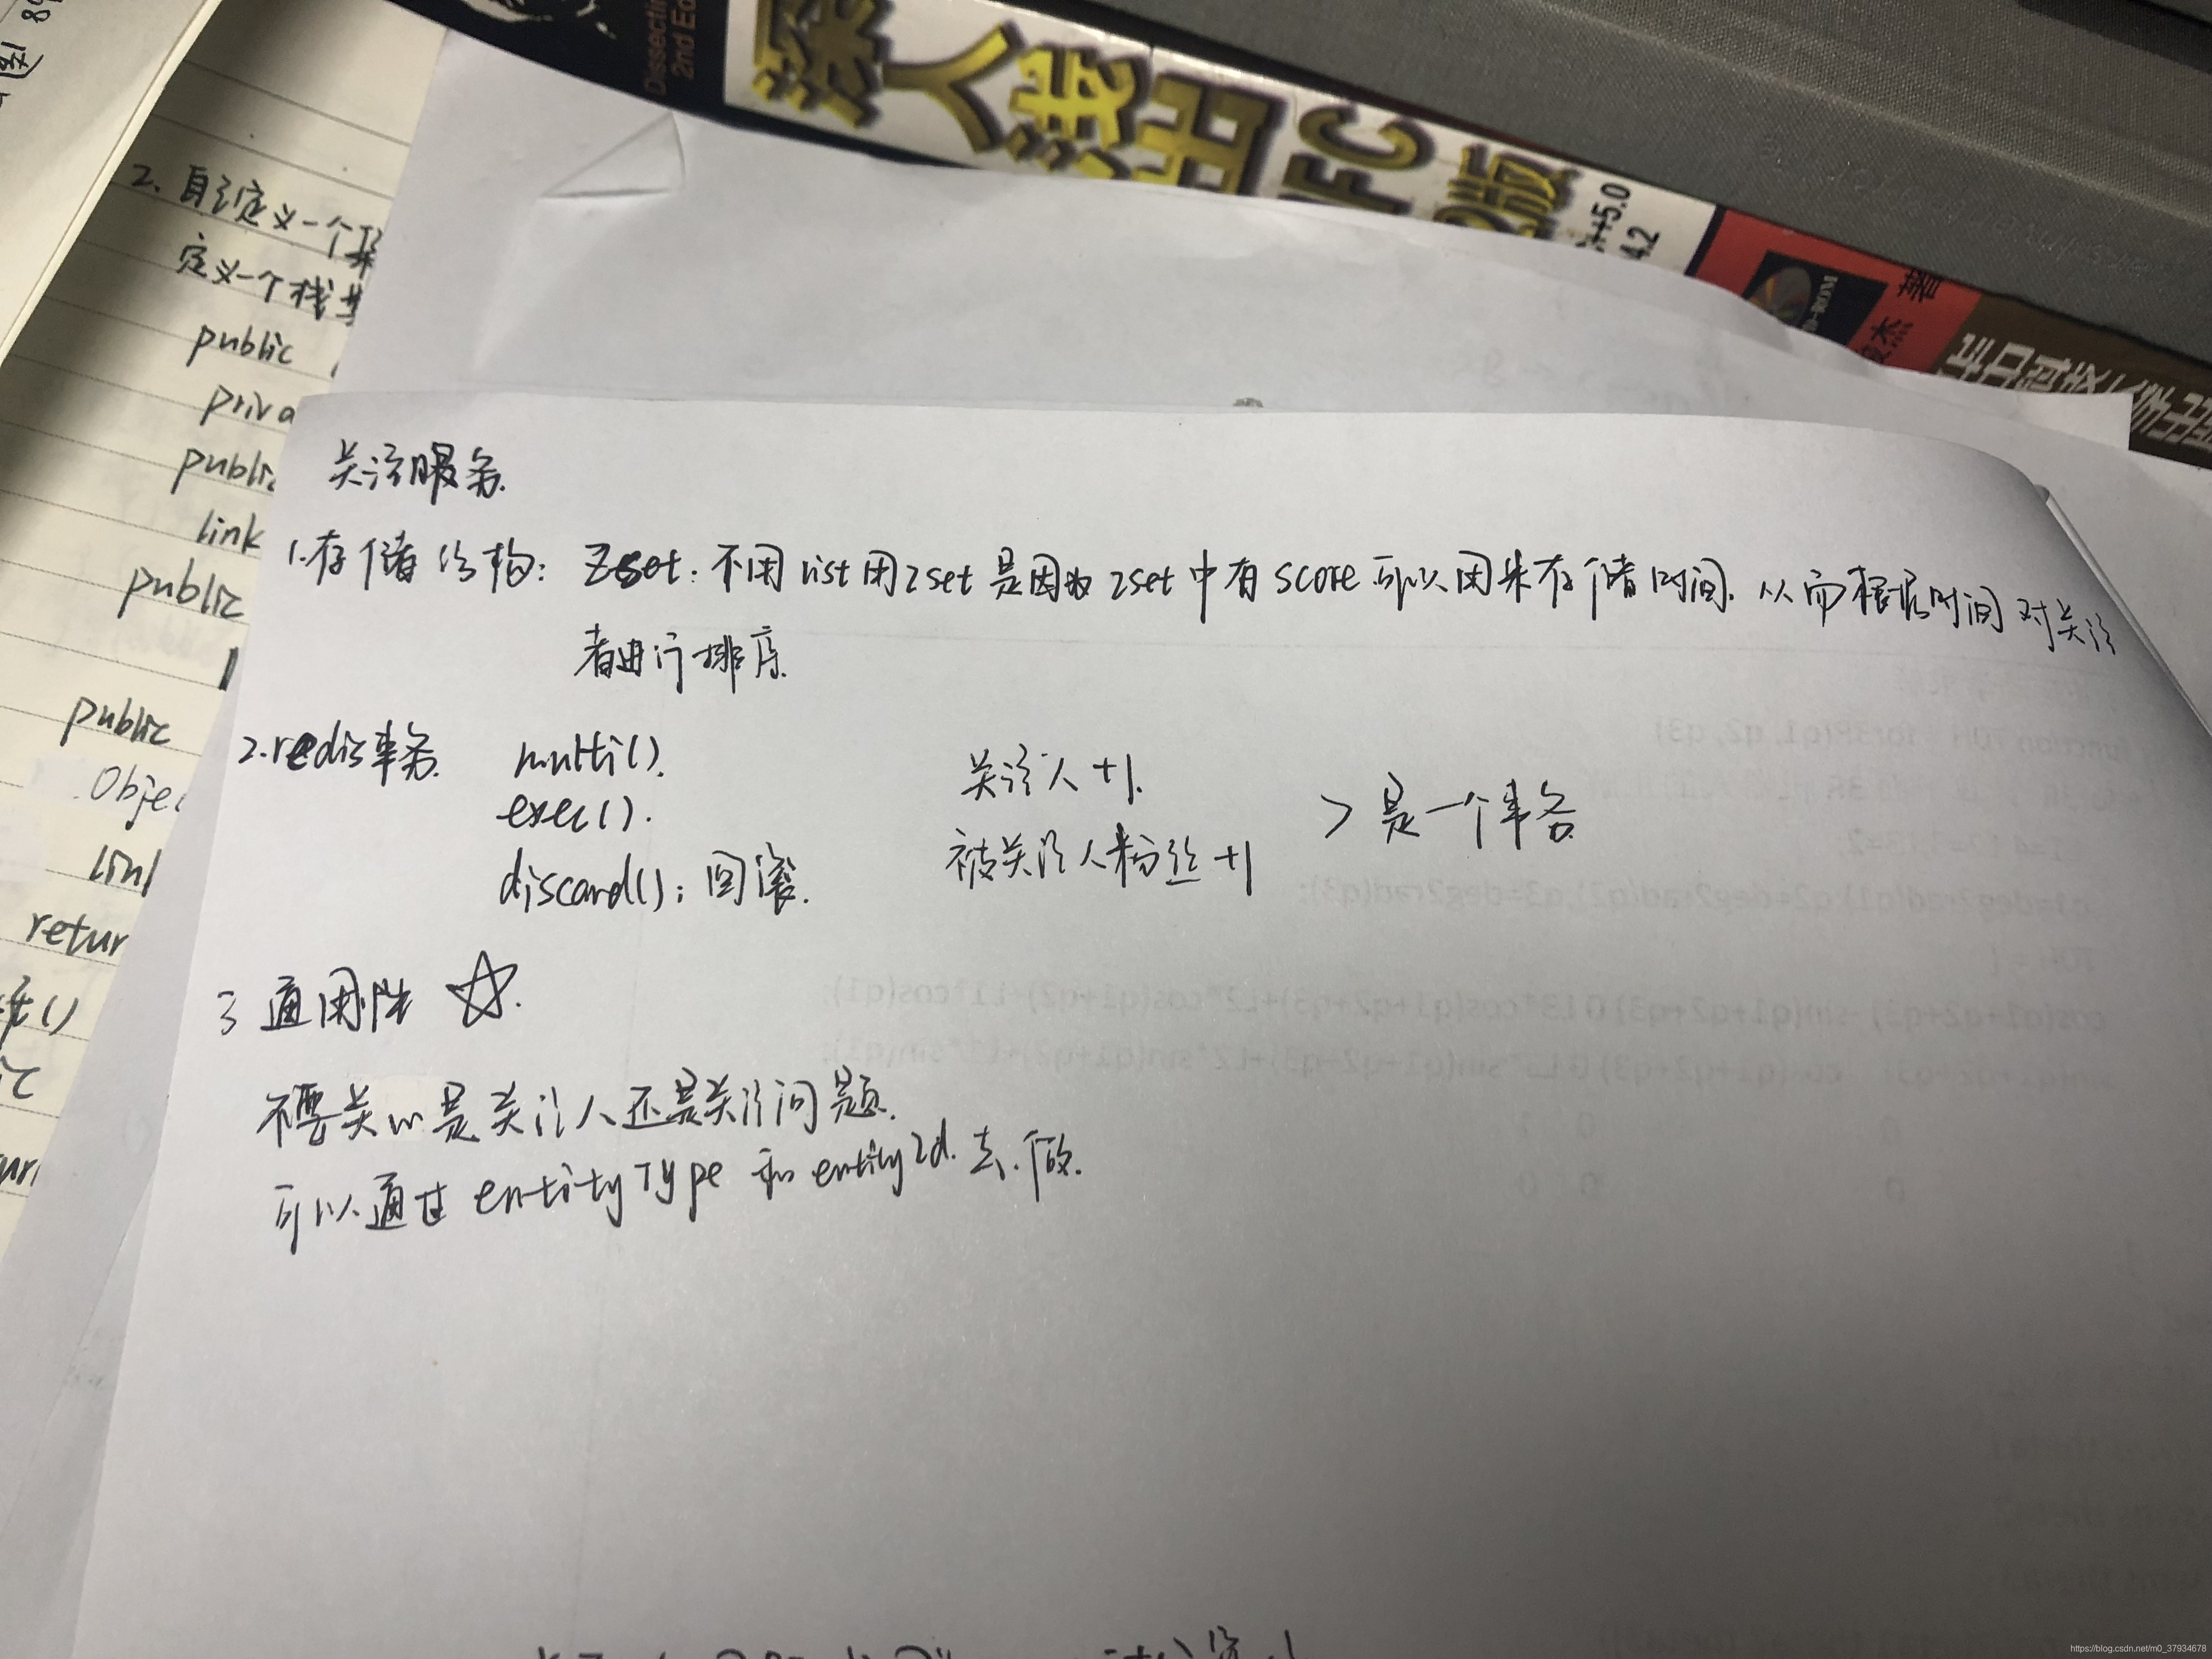 Dissectin
2nd Ed
深入浅出
MFC
2版
++5.0
4.2
著
2. 自己定义一个
定义一个栈
public
priva
public
link
public
public
Objec
link
retur
关注服务
1.存储结构: Zset: 不用list用zset是因为zset中有score可以用来存储时间. 从而根据时间对关注
者进行排序.
2.redis事务. multi(). 关注人+1.
exec(). > 是一个事务
discard(); 回滚. 被关注人粉丝+1
3 通用性 ☆.
不要关心是关注人还是关注问题.
可以通过 entityType 和 entityId. 去.做.
https://blog.csdn.net/m0_37934678